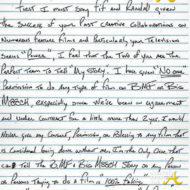 First I must say Fif and Randall given
the success of your past creative collaborations on
numerous feature films and particularly your television
series "Power", I feel that the two of you are the
perfect team to tell my story. I have given "No one"
permission to do any type of film on BMF or Big
Meech, especially since we've been in agreement
and under contract for a little more than 2 years. I would
never give my consent, permission, or blessing to any film that
is considered being done without me. I'm the only one that
can tell the BMF & Big Meech story so any person
or persons trying to do a film is 100% faking